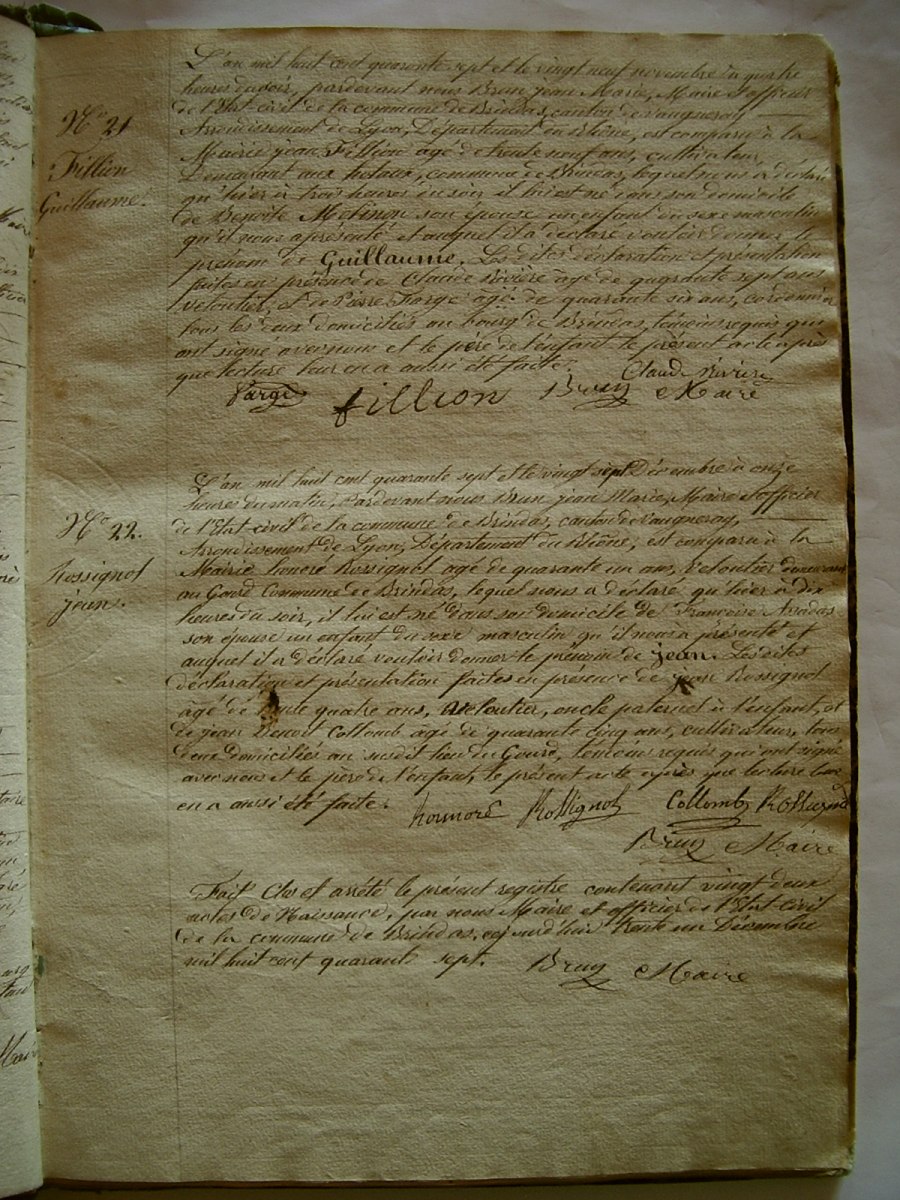 L'an mil huit cent quarante sept et le vingt neuf novembre à quatre
heures du soir, pardevant nous Brun jean Marie, Maire et officier
de l'Etat civil de la commune de Brindas, canton de vaugneray
Nº 21
Arrondissement de Lyon, Département du Rhône, est comparu à la
Fillion
Mairie jean Fillion agé de trente neuf ans, cultivateur,
Demeurant aux commune de Brindas, lequel nous a déclaré
Guillaume.
qu'hier à trois heures du soir il lui est né dans son domicile
de Benoite Metinon son épouse un enfant du sexe masculin
qu'il nous a présenté et auquel il a déclaré vouloir donner le
prénom de Guillaume. Les dites déclaration et présentation
faites en présence de Claude Rivière agé de quarante sept ans
veloutier, et de Pierre Farge agé de quarante six ans, cordonnier
tous les deux domiciliés au bourg de Brindas, témoins requis qui
ont signé avec nous et le père de l'enfant le présent acte après
que lecture leur en a aussi été faite. Claude Rivière
Farge fillion Brun Maire
L'an mil huit cent quarante sept et le vingt sept Décembre à onze
heures du matin, Pardevant nous Brun jean Marie, Maire et officier
Nº 22.
de l'Etat civil de la commune de Brindas, canton de vaugneray,
Arrondissement de Lyon, Département du Rhône, est comparu à la
Rossignol
Mairie honoré Rossignol agé de quarante un ans, veloutier demeurant
jean.
au Gourd Commune de Brindas, lequel nous a déclaré qu'hier à dix
heures du soir, il lui est né dans son domicile de Françoise
son épouse un enfant du sexe masculin qu'il nous a présenté et
auquel il a déclaré vouloir donner le prénom de jean. Les dites
déclaration et présentation faites en présence de jean Rossignol
agé de trente quatre ans, veloutier, oncle paternel à l'enfant, et
de jean Benoit Collomb agé de quarante cinq ans, cultivateur, tous
deux domiciliés au susdit lieu du Gourd, témoins requis qui ont signé
avec nous et le père de l'enfant, le présent acte après que lecture leur
en a aussi été faite. honnoré Rossignol Collomb Rossignol
Brun Maire
Fait Clos et arrêté le présent registre contenant vingt deux
actes de Naissance, par nous Maire et officier de l'Etat civil
de la commune de Brindas, cejourd'hui trente un Décembre
mil huit cent quarante sept. Brun Maire